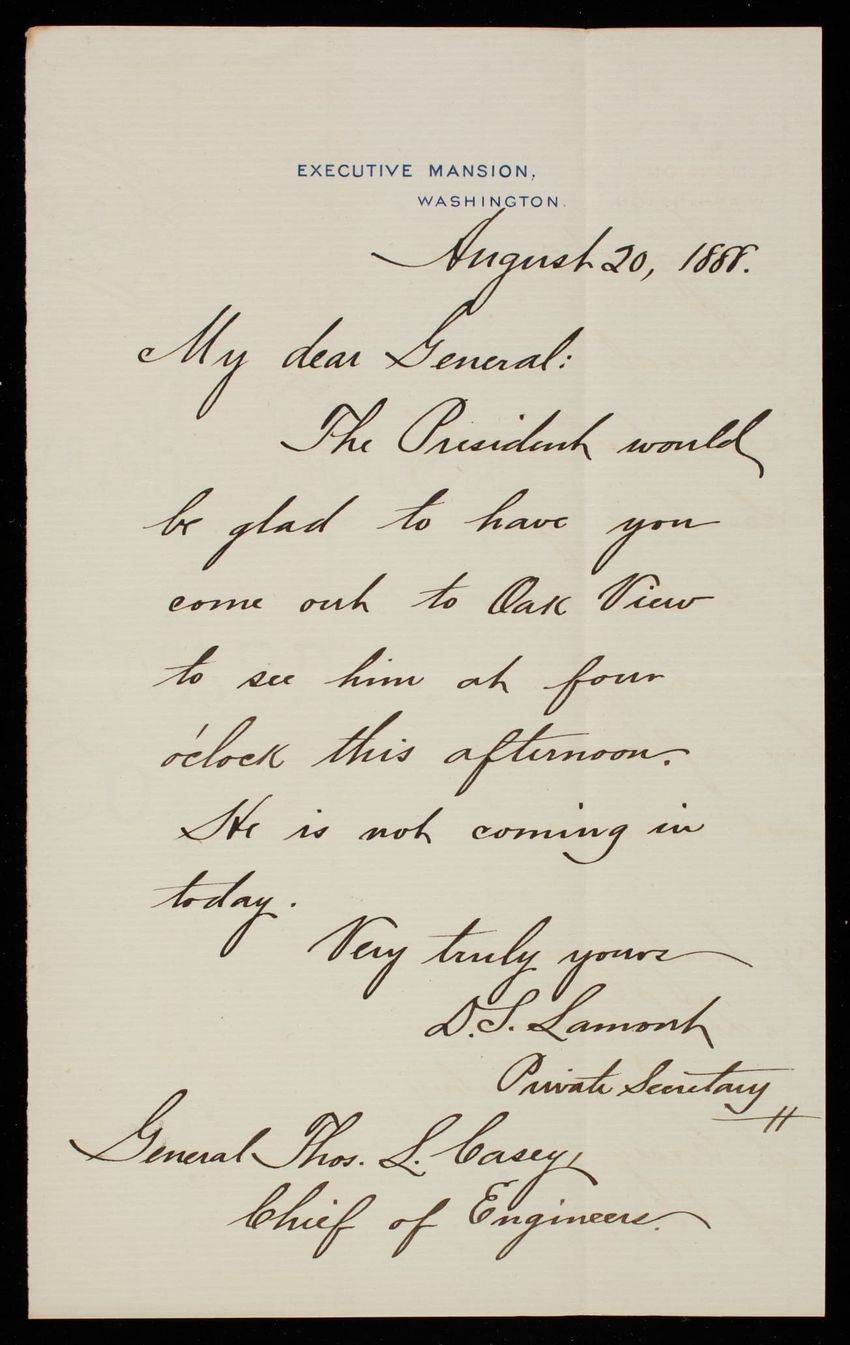 EXECUTIVE MANSION,
WASHINGTON.
August 20, 1888.
My dear General:
The President would
be glad to have you
come out to Oak View
to see him at four
o'clock this afternoon.
He is not coming in
today.
Very truly yours
D. S. Lamont
Private Secretary
General Thos. L. Casey,
Chief of Engineers.